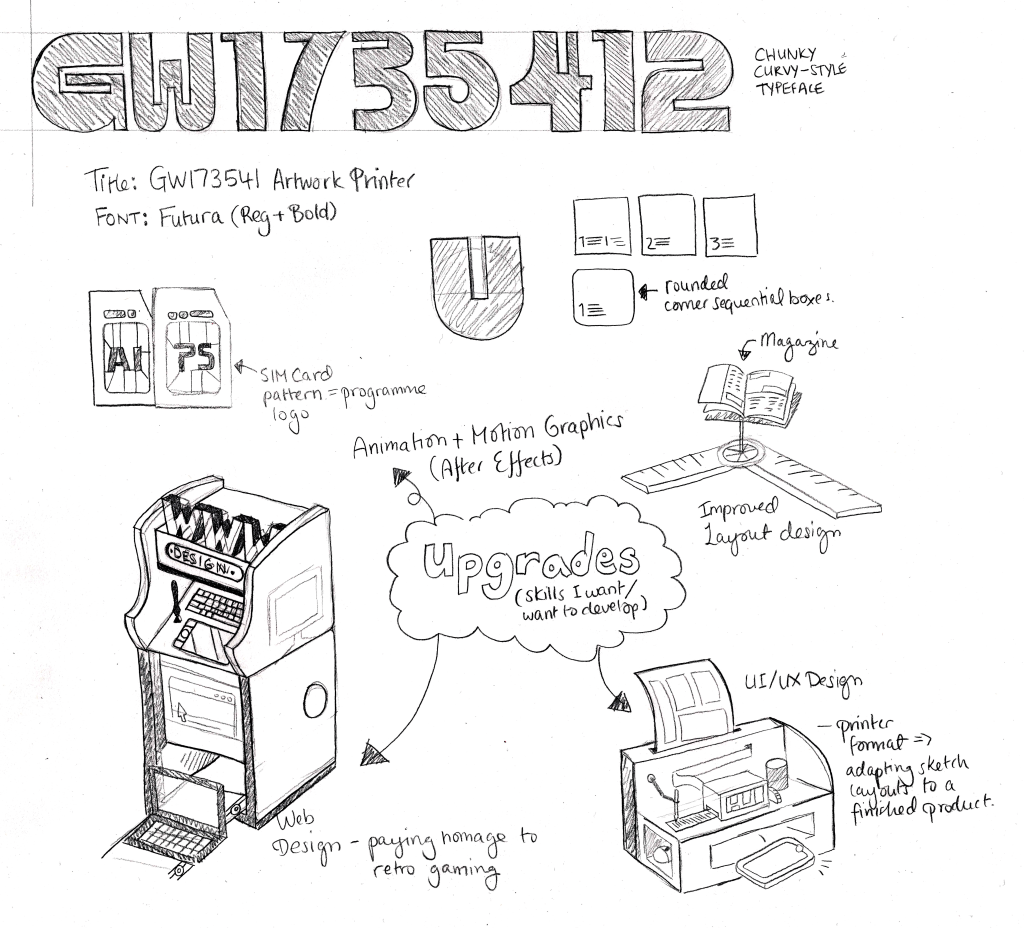 GW1735412
CHUNKY
CURVY-STYLE
TYPEFACE
Title: GW173541 Artwork Printer
FONT: Futura (Reg + Bold)
1 1
2
3
1
rounded
corner sequential boxes.
AI PS
SIM Card
pattern = programme
logo
Magazine
Improved
Layout design
Animation + Motion Graphics
(After Effects)
Upgrades
(skills I want/
want to develop)
WWW
DESIGN
Web
Design - paying homage to
retro gaming
UI/UX Design
- printer
format =>
adapting sketch
layouts to a
finished product.